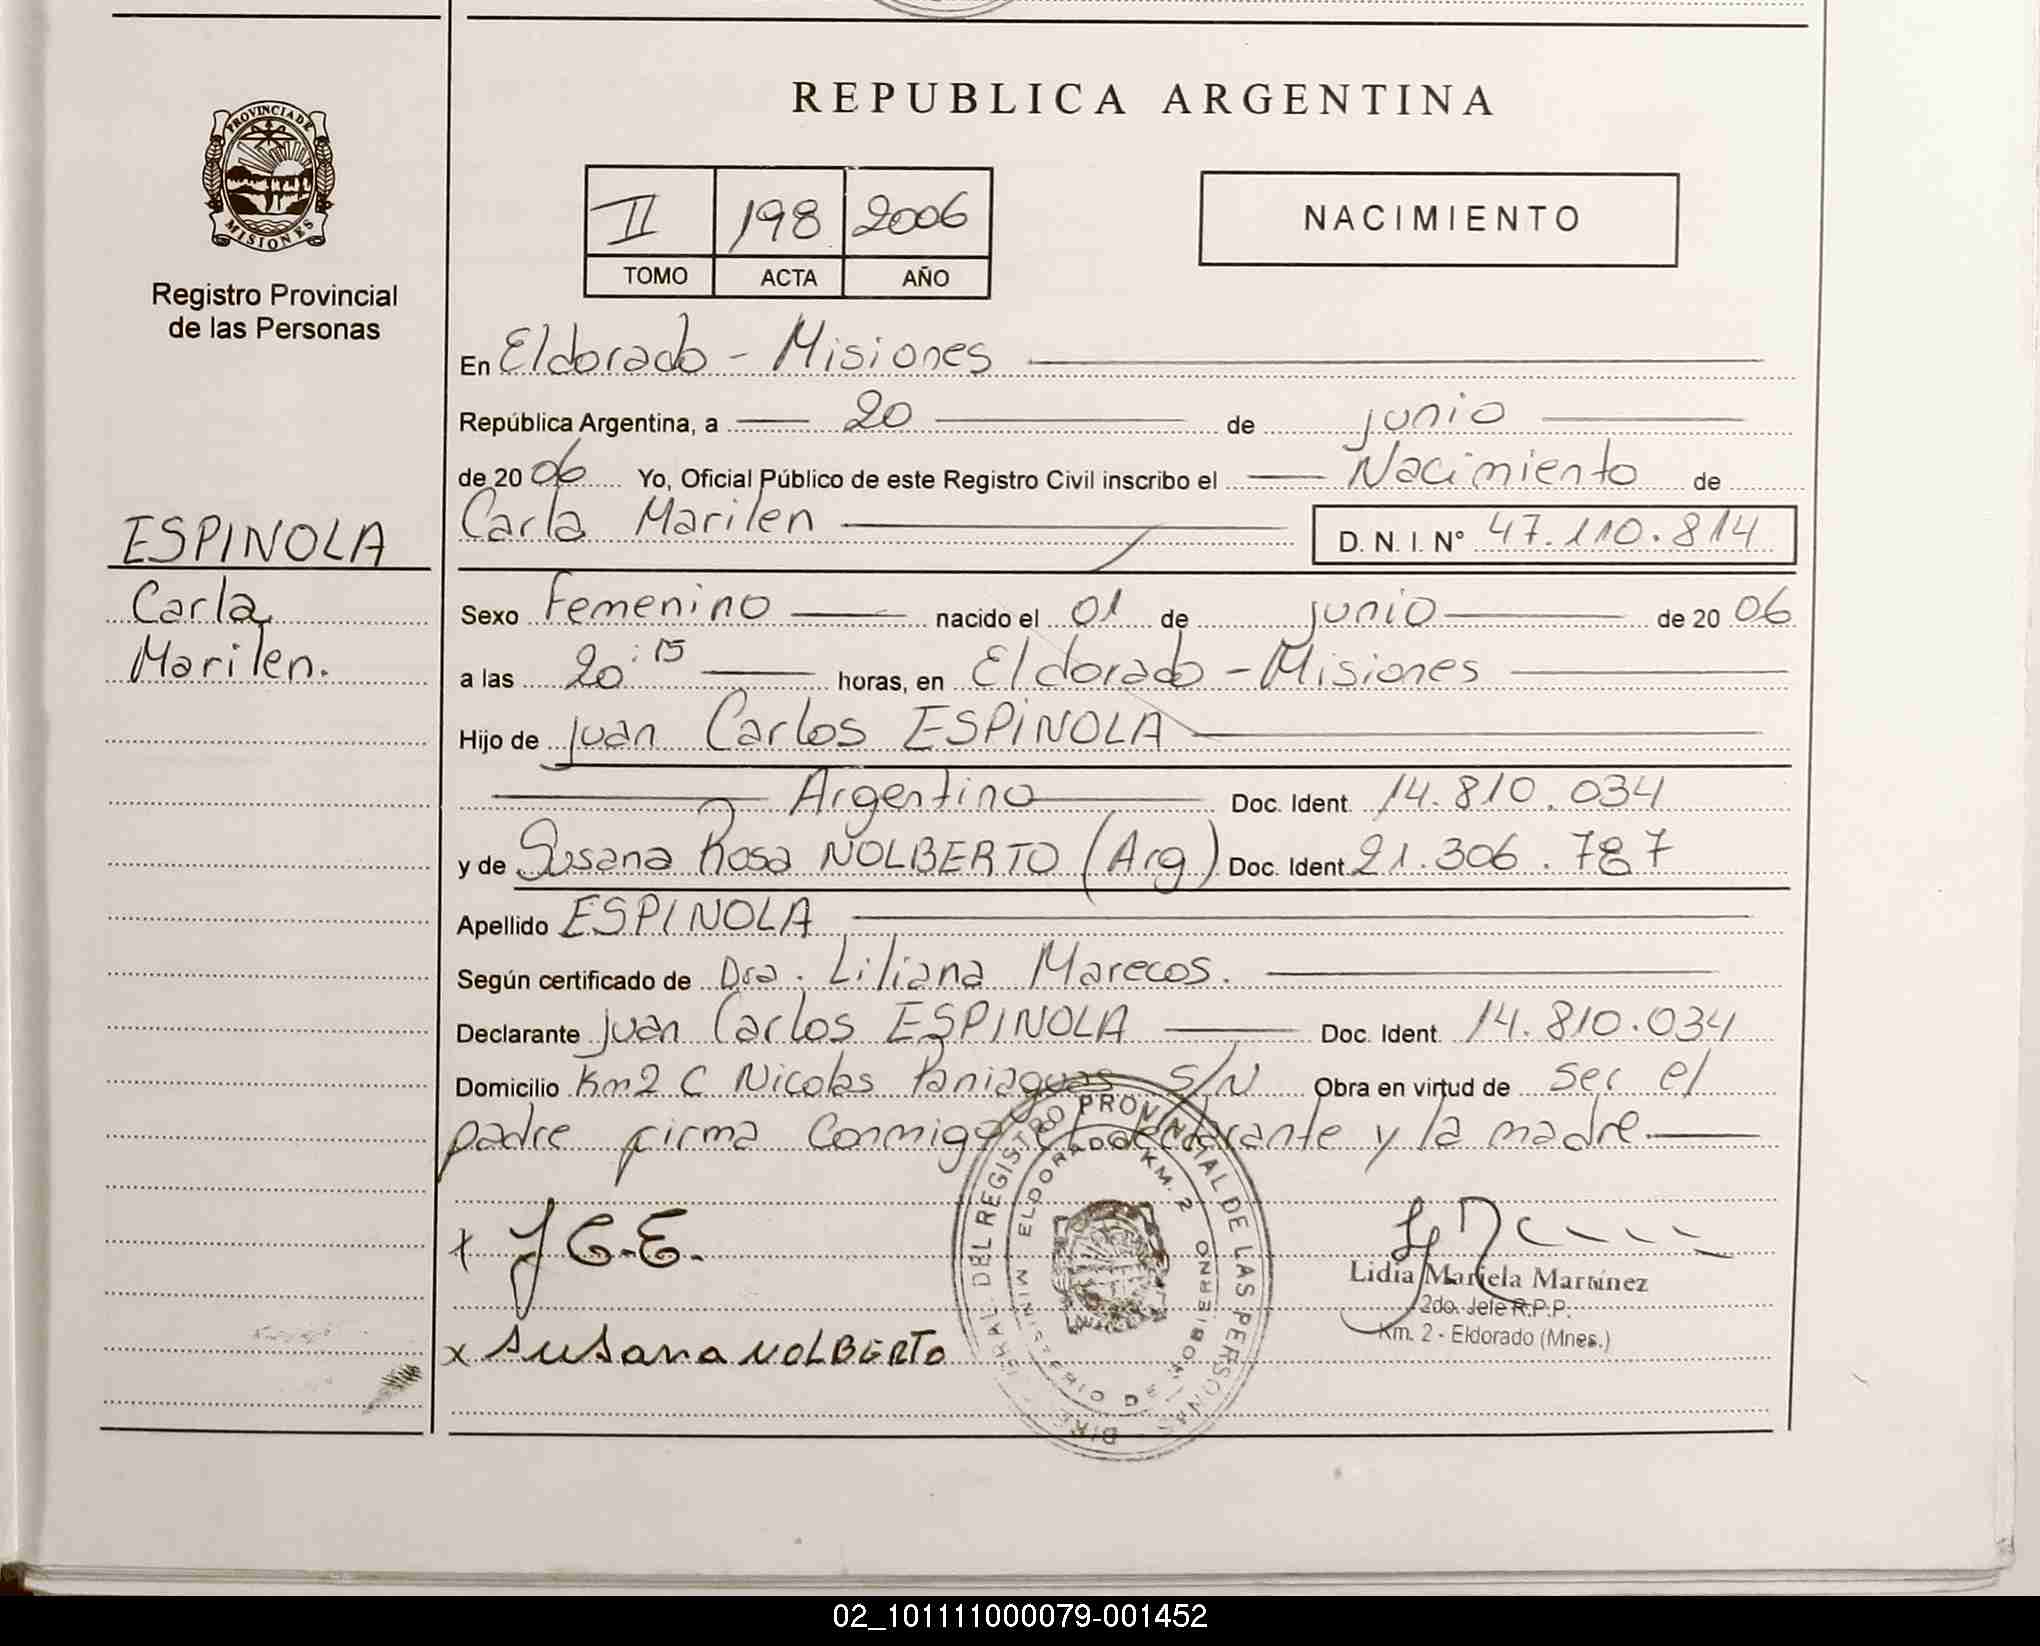 REPUBLICA ARGENTINA
PROVINCIA DE
MISIONES
Registro Provincial
de las Personas
II 198 2006
TOMO ACTA AÑO
NACIMIENTO
En Eldorado - Misiones
República Argentina, a 20 de junio
de 2006 Yo, Oficial Público de este Registro Civil inscribo el Nacimiento de
Carla Marilen D. N. I. N° 47.110.814
ESPINOLA
Carla
Marilen.
Sexo Femenino nacido el 01 de junio de 2006
a las 20:15 horas, en Eldorado - Misiones
Hijo de Juan Carlos ESPINOLA
Argentino Doc. Ident. 14.810.034
y de Susana Rosa NOLBERTO (Arg) Doc. Ident. 21.306.787
Apellido ESPINOLA
Según certificado de Dra. Liliana Marecos.
Declarante Juan Carlos ESPINOLA Doc. Ident. 14.810.034
Domicilio Km2 C Nicolas Paniaguas S/N Obra en virtud de ser el
padre firma conmigo el declarante y la madre
x J C.E.
x Susana NOLBERTO
DEL REGISTRO PROVINCIAL DE LAS PERSONAS
ELDORADO KM. 2
Lidia Mariela Martínez
2do. Jefe R.P.P.
Km. 2 - Eldorado (Mnes.)
02_101111000079-001452